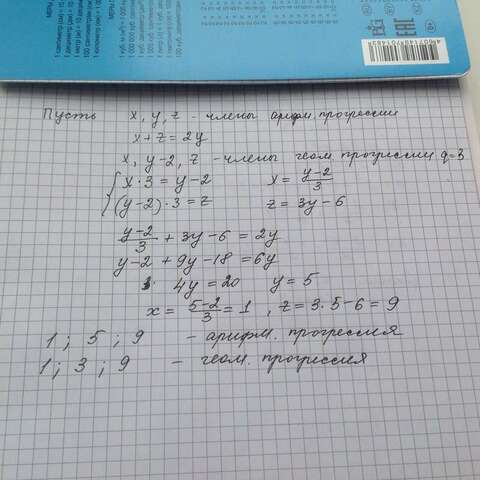 Пусть x, y, z - члены арифм. прогрессии
x+z = 2y
x, y-2, z - члены геом. прогрессии q=3
{ x·3 = y-2 x = \frac{y-2}{3}
(y-2)·3 = z z = 3y-6
\frac{y-2}{3} + 3y-6 = 2y
y-2 + 9y-18 = 6y
4y = 20 y = 5
x = \frac{5-2}{3} = 1 , z = 3·5-6 = 9
1 ; 5 ; 9 - арифм. прогрессия
1 ; 3 ; 9 - геом. прогрессия